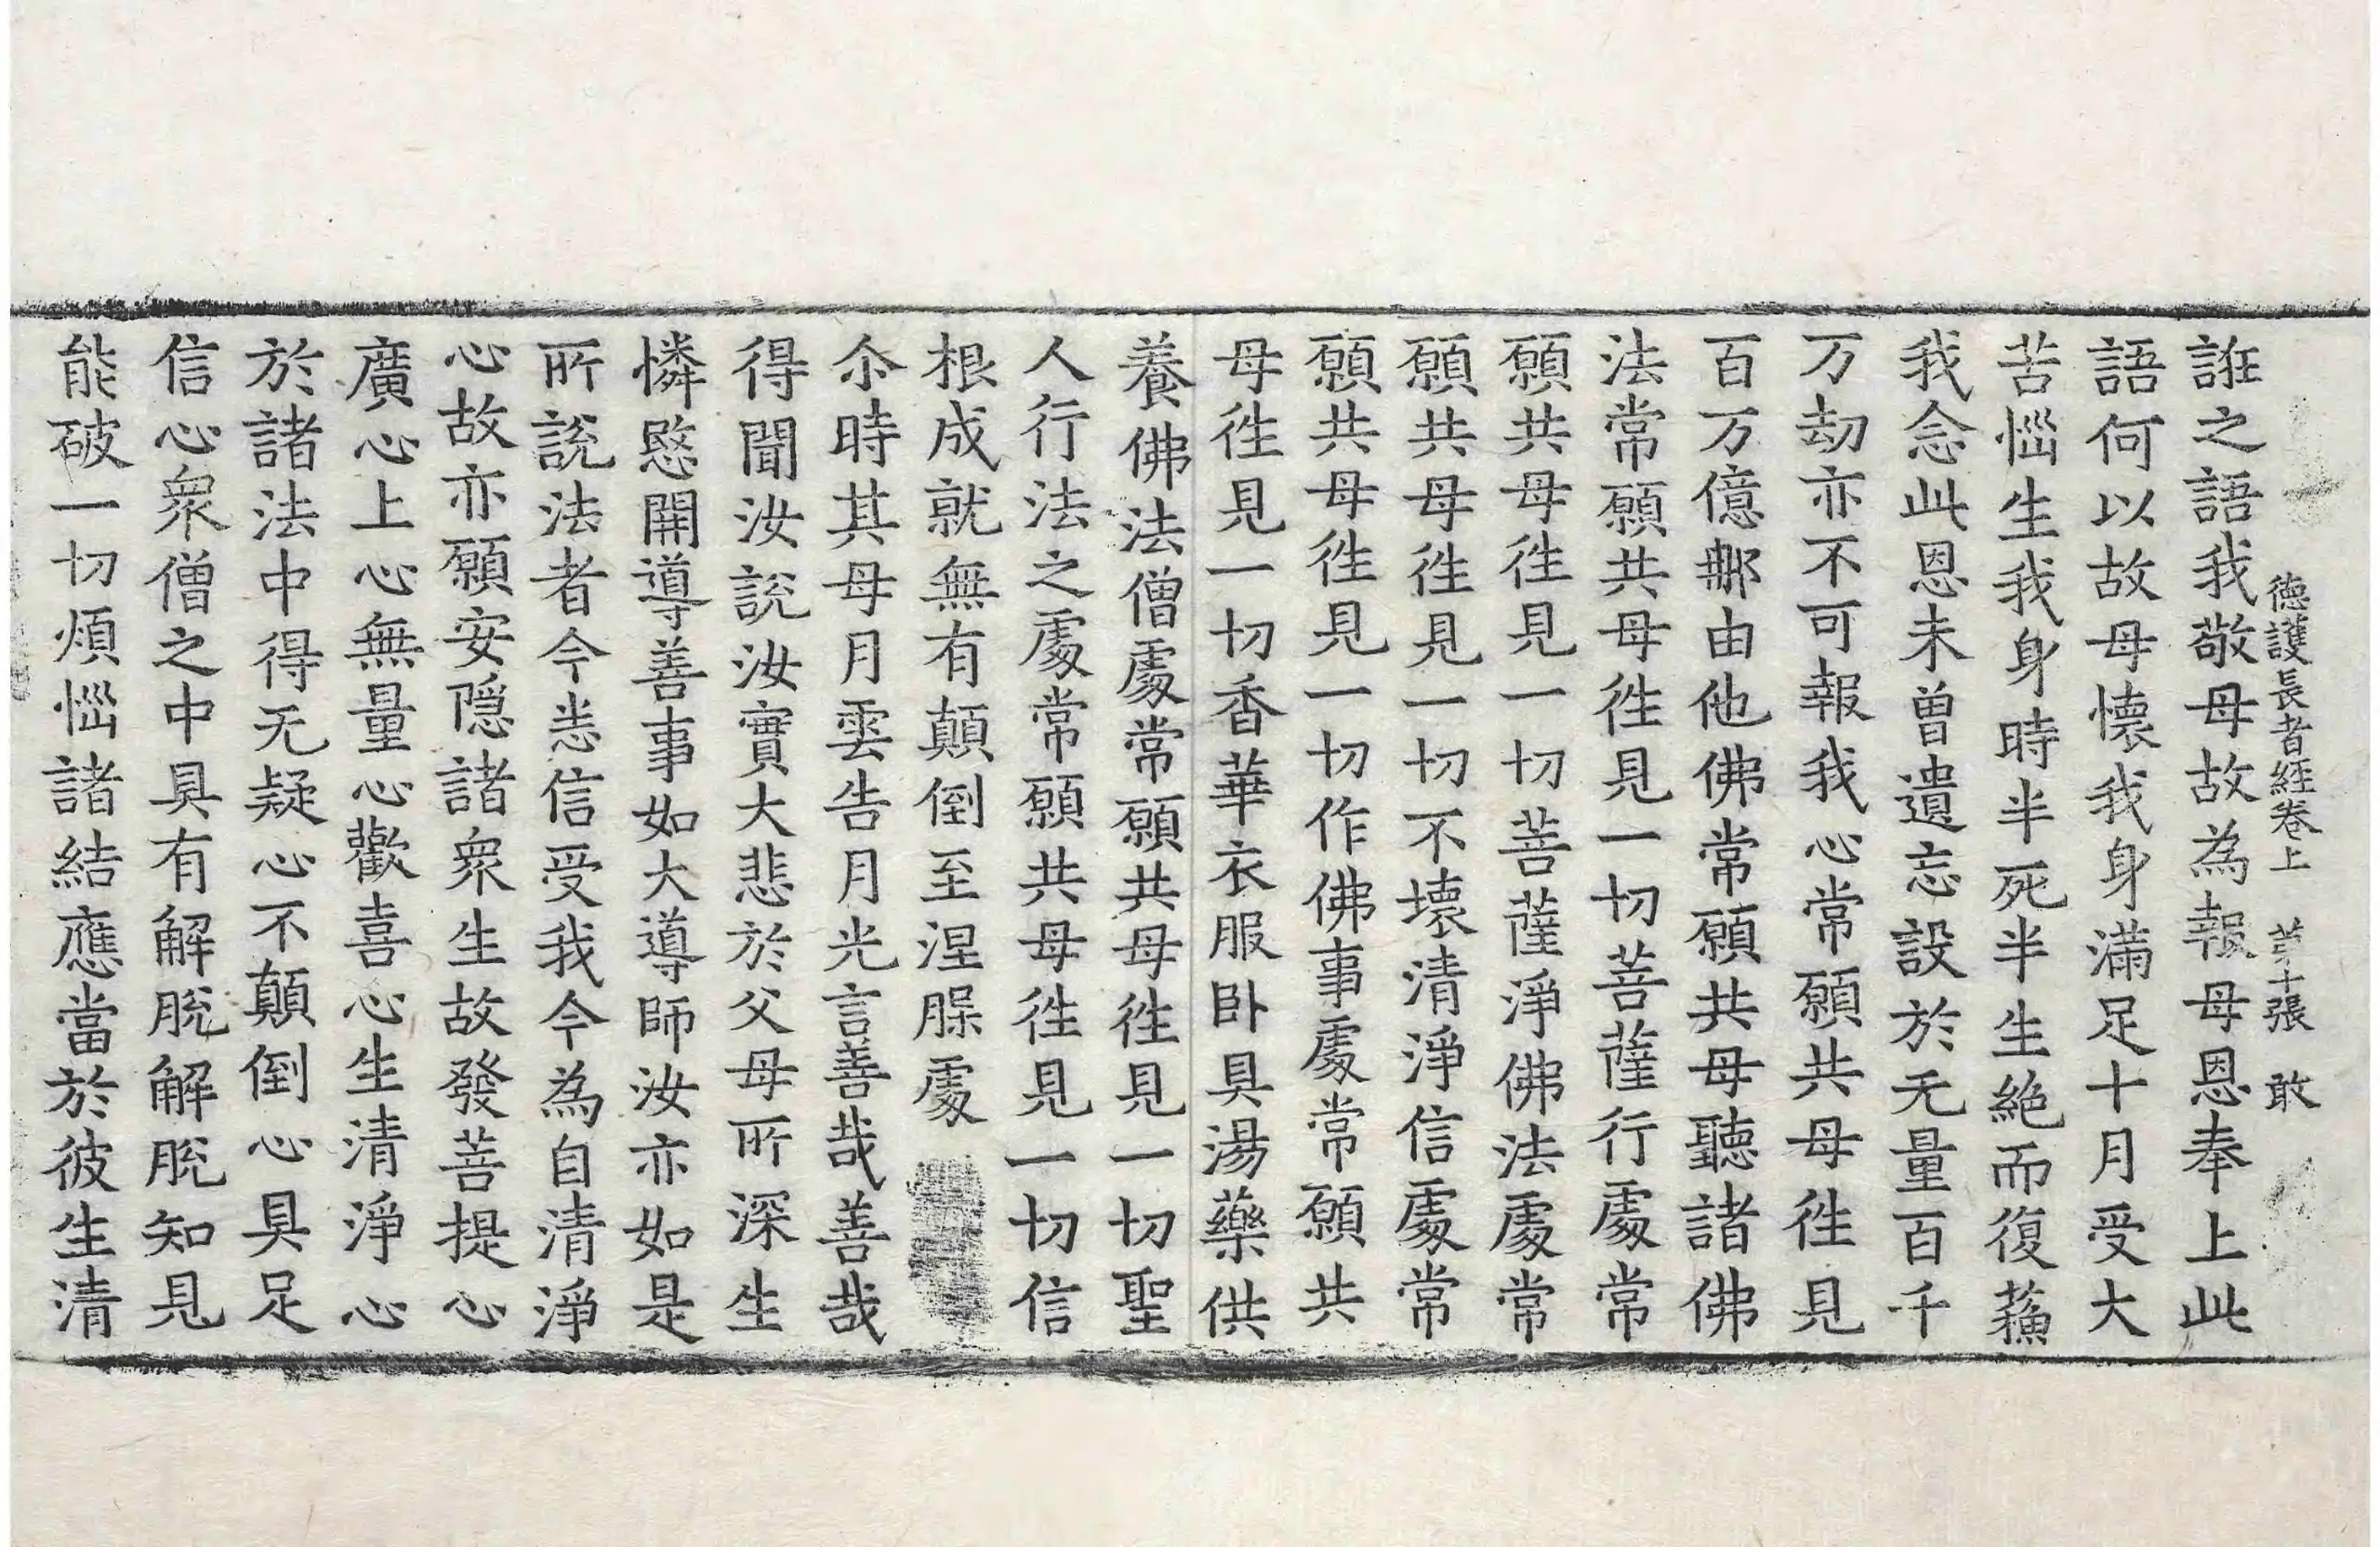 德護長者經卷上 第十張 敢
誑之語我敬母故為報母恩奉上此
語何以故母懷我身滿足十月受大
苦惱生我身時半死半生絕而復蘓
我念此恩未曾遺忘設於无量百千
万劫亦不可報我心常願共母徃見
百万億那由他佛常願共母聽諸佛
法常願共母徃見一切菩薩行處常
願共母徃見一切菩薩淨佛法處常
願共母徃見一切不壞清淨信處常
願共母徃見一切作佛事處常願共
母徃見一切香華衣服卧具湯藥供
養佛法僧處常願共母徃見一切聖
人行法之處常願共母徃見一切信
根成就無有顛倒至涅槃處
尒時其母月雲告月光言善哉善哉
得聞汝說汝實大悲於父母所深生
憐愍開導善事如大導師汝亦如是
所說法者今悉信受我今為自清淨
心故亦願安隱諸衆生故發菩提心
廣心上心無量心歡喜心生清淨心
於諸法中得无疑心不顛倒心具足
信心衆僧之中具有解脫解脫知見
能破一切煩惱諸結應當於彼生清